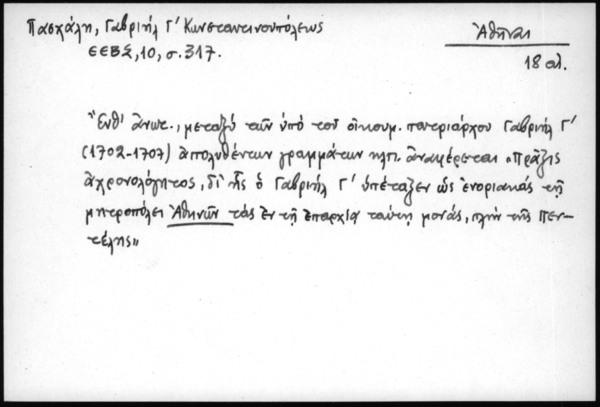 Πασχάλη, Γαβριήλ Γ' Κωνσταντινουπόλεως
ΕΕΒΣ, 10, σ. 317.
Ἀθῆναι
18 αἰ.
Ἔνθ' ἄνωτ., μεταξύ τῶν ὑπό τοῦ οἰκουμ. πατριάρχου Γαβριήλ Γ'
(1702-1707) ἀπολυθέντων γραμμάτων κλπ. ἀναφέρεται «Πρᾶξις
ἀχρονολόγητος, δι' ἧς ὁ Γαβριήλ Γ' ὑπέταξεν ὡς ἐνοριακάς τῇ
μητροπόλει Ἀθηνῶν τάς ἐν τῇ ἐπαρχίᾳ ταύτῃ μονάς, πλήν τῆς Πεν-
τέλης»